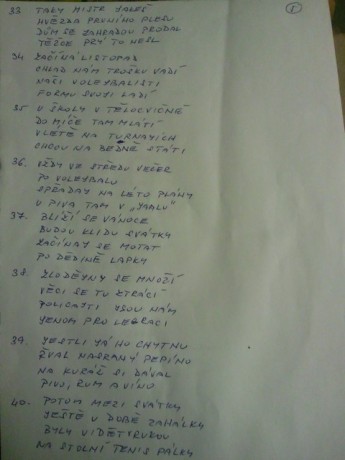 5
33. TAKY MISTR JALEŠ
HVĚZDA PRVNÍHO PLESU
DŮM SE ZAHRADOU PRODAL
TĚŽCE PRÝ TO NESL
34. ZAČÍNÁ LISTOPAD
CHLAD NÁM TROŠKU VADÍ
NAŠI VOLEYBALISTI
FORMU SVOJI LADÍ
35 U ŠKOLY V TĚLOCVIČNĚ
DO MÍČE TAM MLÁTÍ
V LÉTĚ NA TURNAJÍCH
CHCOU NA BEDNĚ STÁTI
36. VŽDY VE STŘEDU VEČER
PO VOLEYBALU
SPŘÁDAJ NA LÉTO PLÁNY
U PIVA TAM V „YAALU"
37. BLÍŽÍ SE VÁNOCE
BUDOU KLIDU SVÁTKY
ZAČÍNAJ SE MOTAT
PO DĚDINĚ LAPKY
38. ZLODĚJNY SE MNOŽÍ
VĚCI SE TU ZTRÁCÍ
POLICAJTI JSOU NÁM
JENOM PRO LEGRACI
39. JESTLI JÁ HO CHYTNU
ŘVAL NASRANÝ PEPÍNO
NA KURÁŽ SI DÁVAL
PIVO, RUM A VÍNO
40. POTOM MEZI SVÁTKY
JEŠTĚ V DOBĚ ZAHÁLKY
BYLY VIDĚT V RUKOU
NA STOLNÍ TENIS PÁLKY